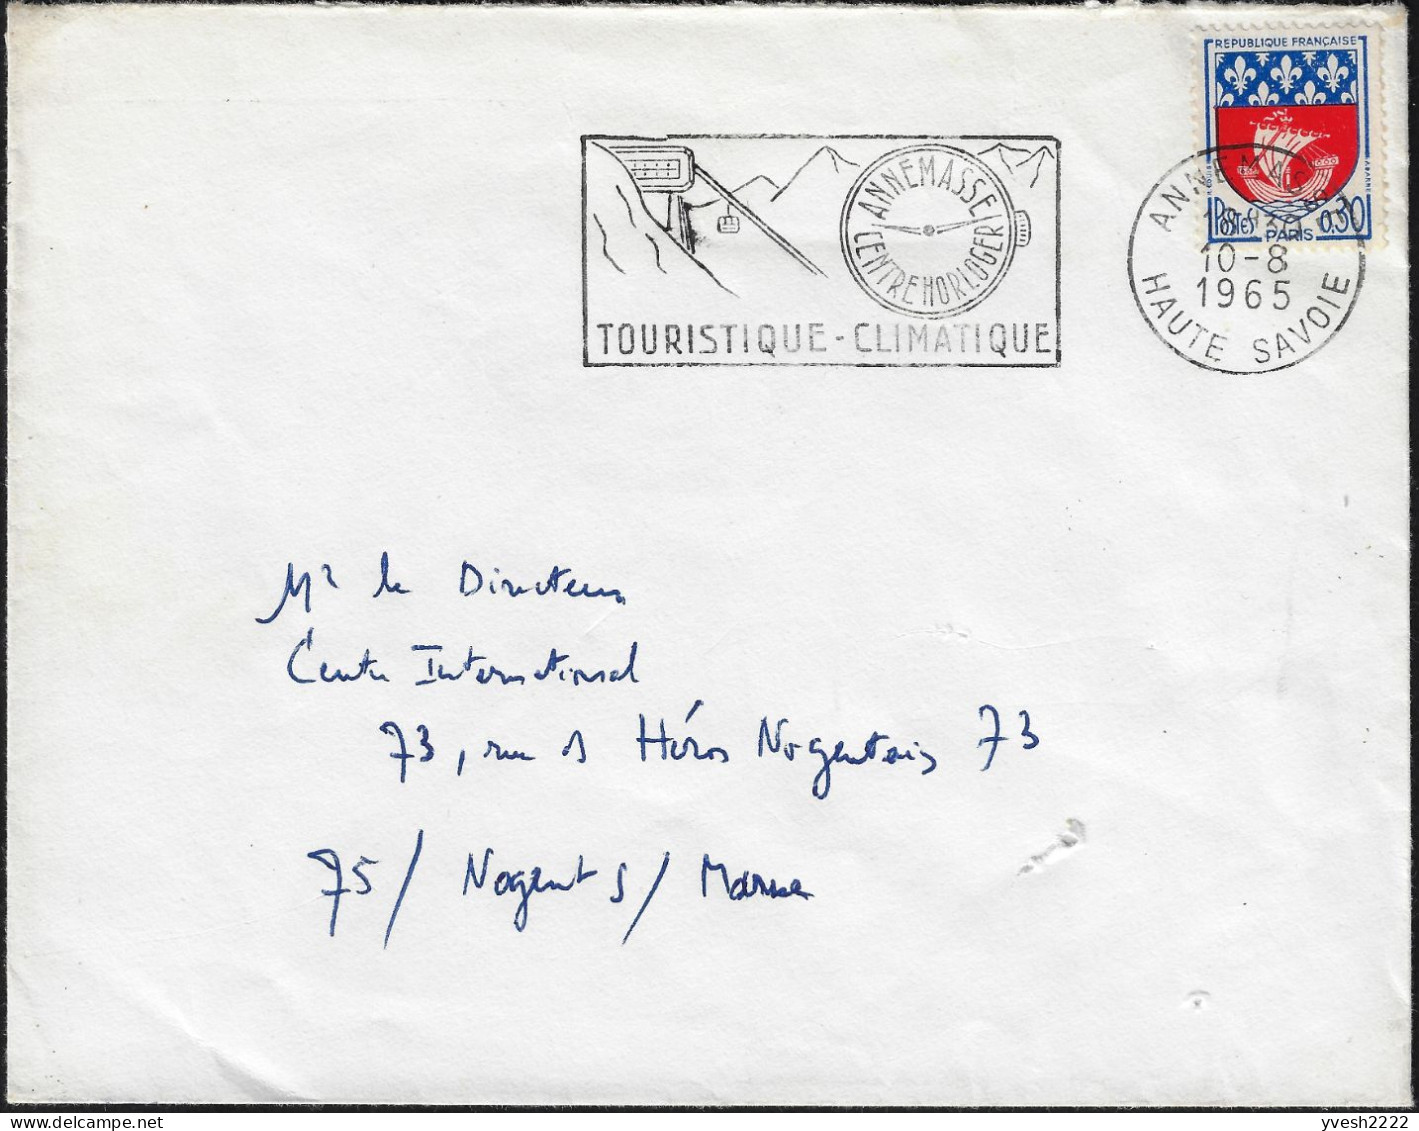 REPUBLIQUE FRANÇAISE
Postes PARIS 0,30
ANNEMASSE
10-8
1965
HAUTE SAVOIE
ANNEMASSE
CENTRE HORLOGER
TOURISTIQUE - CLIMATIQUE
Mr le Directeur
Centre International
73, rue des Héros Nogentais 73
75/ Nogent s/ Marne
yvesh2222